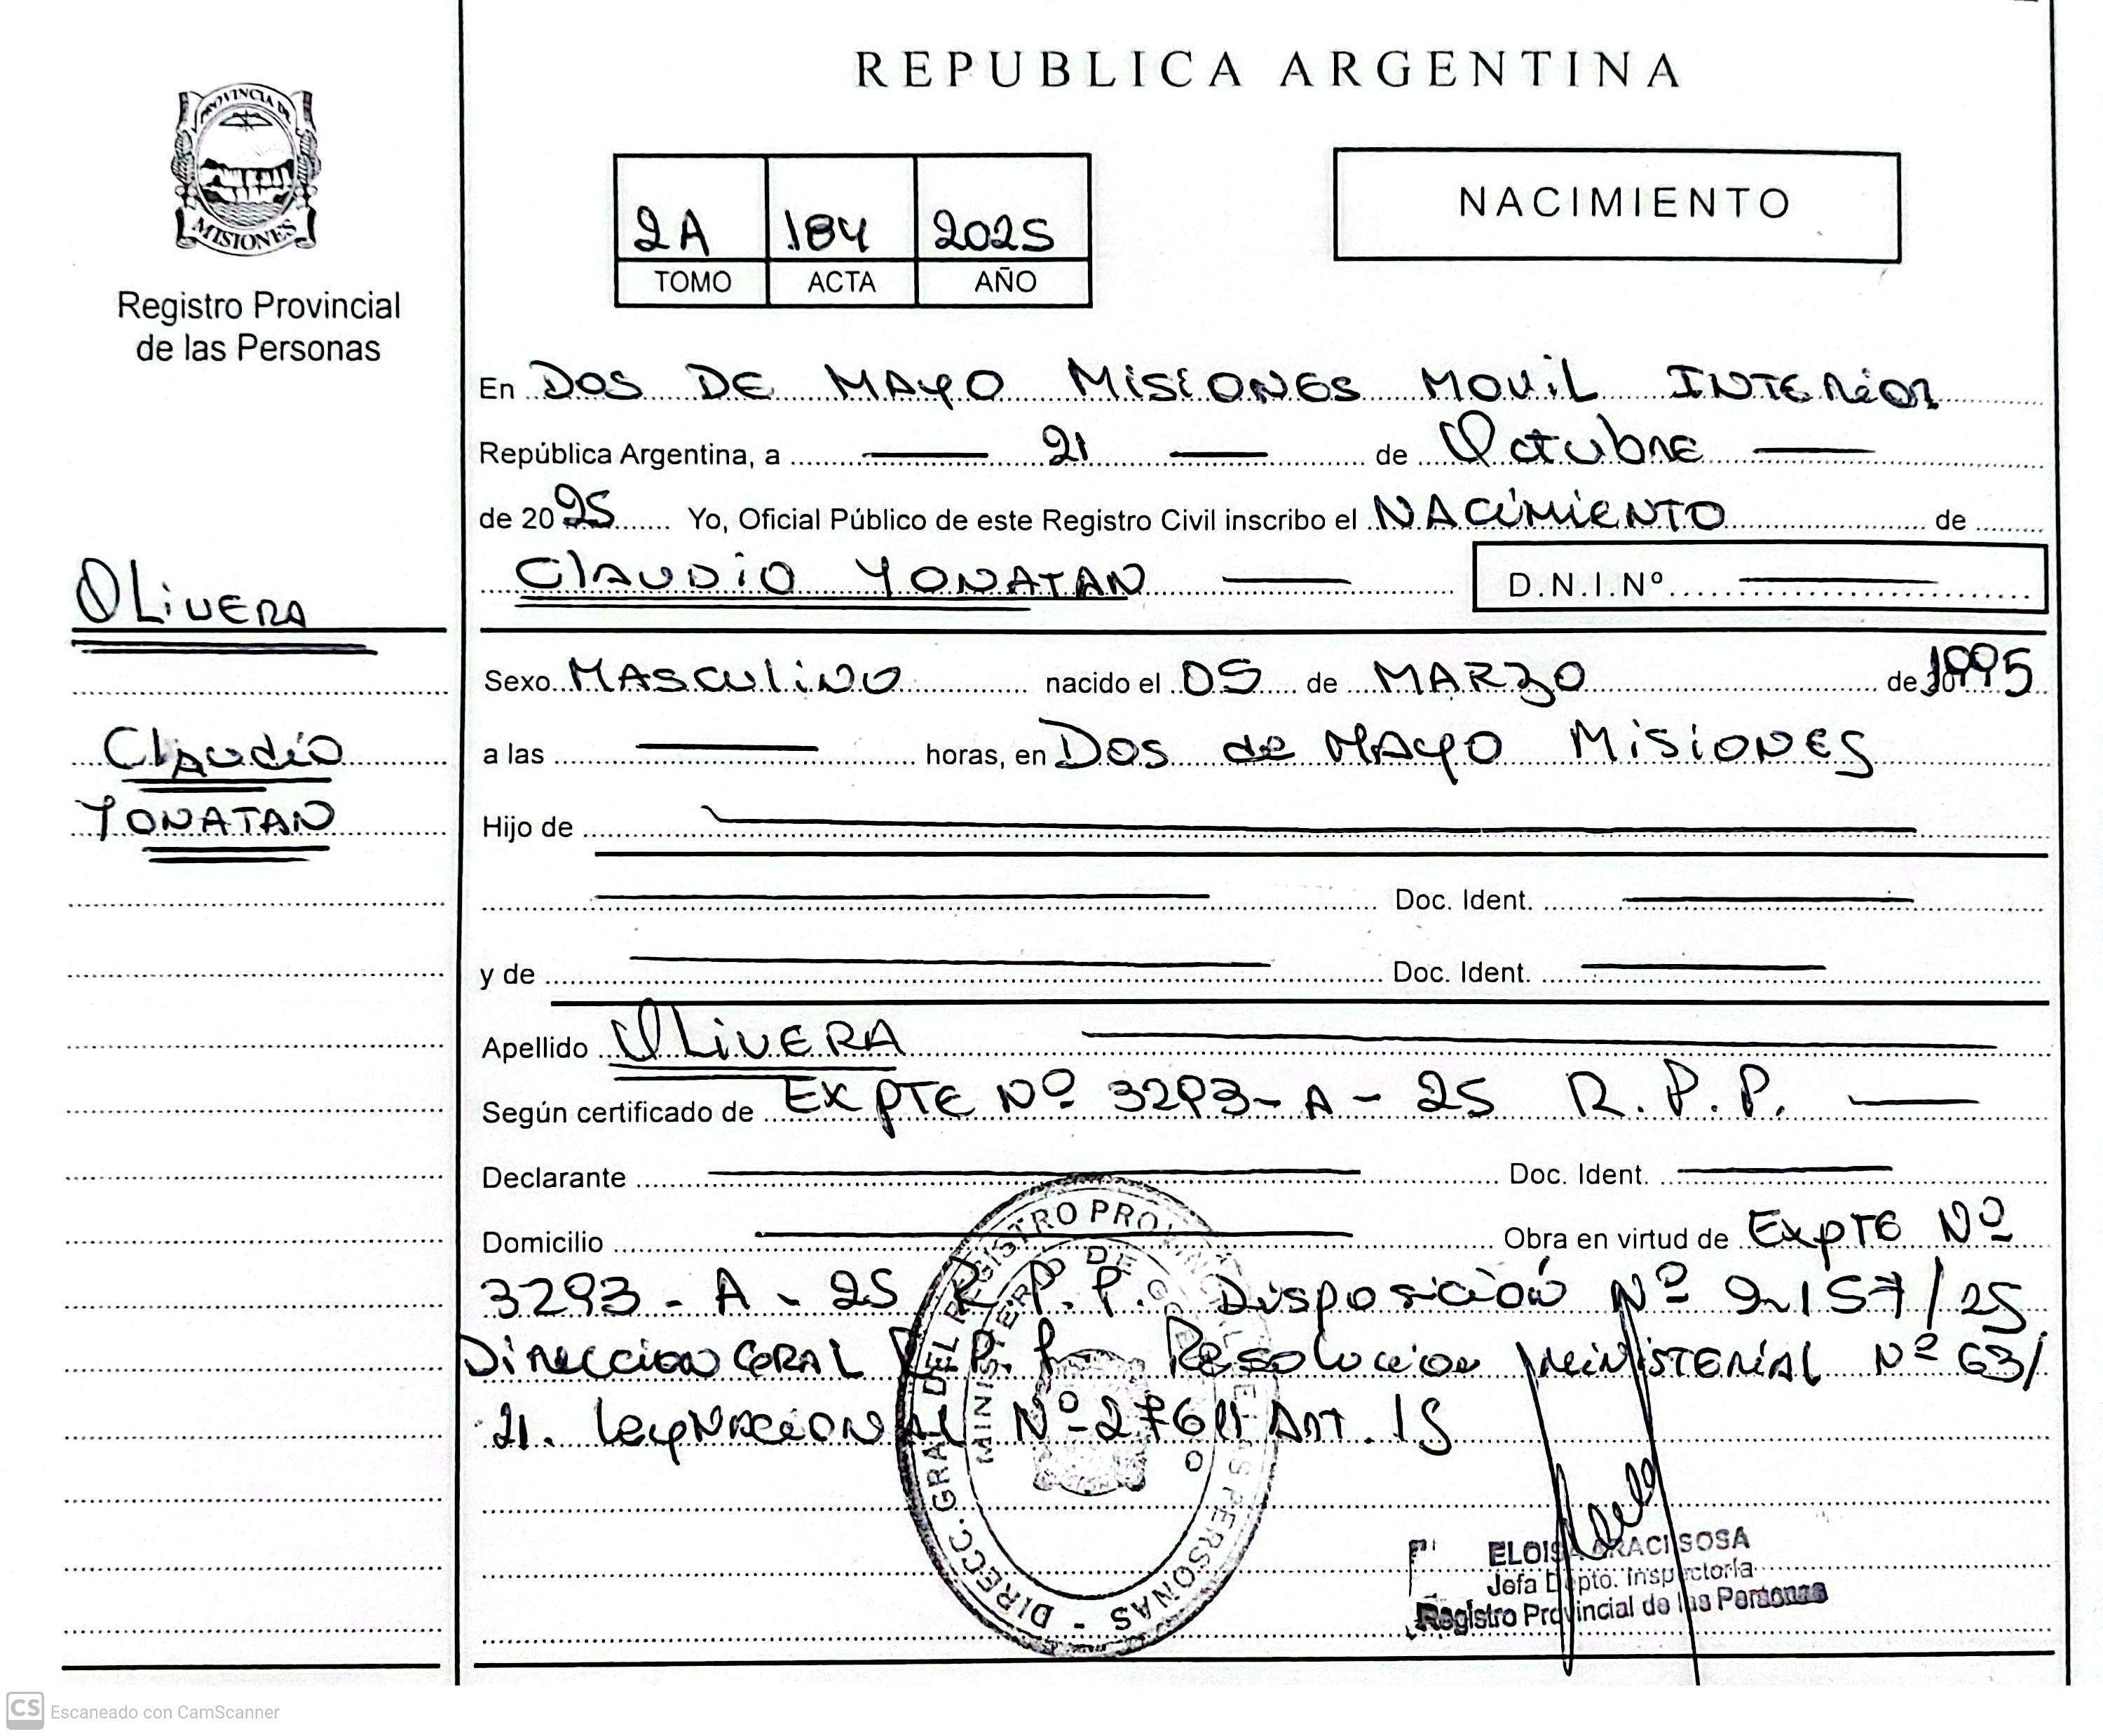 REPUBLICA ARGENTINA
PROVINCIA DE
MISIONES
Registro Provincial
de las Personas
2A 184 2025
TOMO ACTA AÑO
NACIMIENTO
En DOS DE MAYO MISIONES MOVIL INTERIOR
República Argentina, a 21 de Octubre
de 2025 Yo, Oficial Público de este Registro Civil inscribo el NACIMIENTO de
CLAUDIO YONATAN D.N.I.Nº
OLIVERA
Claudio
YONATAN
Sexo MASCULINO nacido el 05 de MARZO de 1995
a las horas, en Dos de MAYO MISIONES
Hijo de
Doc. Ident.
y de Doc. Ident.
Apellido OLIVERA
Según certificado de EXPTE Nº 3293-A-25 R.P.P.
Declarante Doc. Ident.
Domicilio Obra en virtud de EXPTE Nº
3293-A-25 R.P.P. Disposición Nº 2157/25
DIRECCION GRAL R.P.P. Resolucion MINISTERIAL Nº 63/
21. Ley NACIONAL Nº 27611 ART. 15
DIRECC. GRAL DEL REGISTRO PROVINCIAL DE LAS PERSONAS -
MINISTERIO DE GOBIERNO
ELOISA ARACI SOSA
Jefa Dpto. Inspectoría
Registro Provincial de las Personas
CS Escaneado con CamScanner